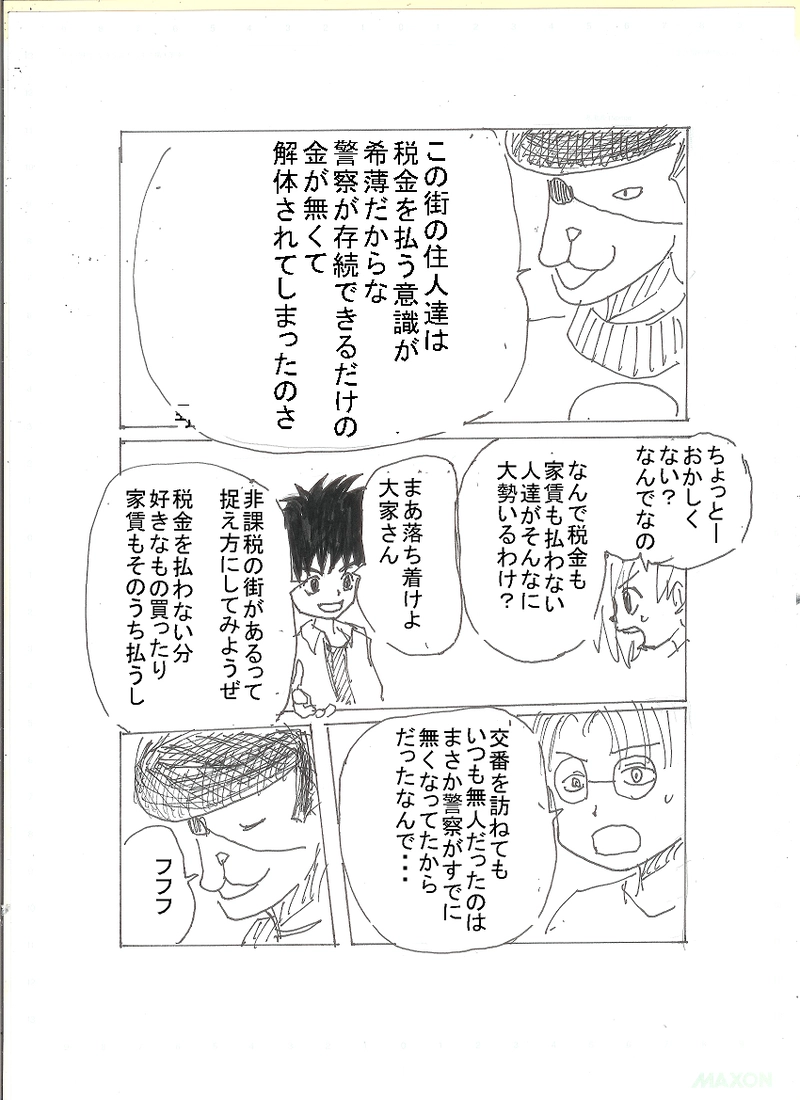 この街の住人達は
税金を払う意識が
希薄だからな
警察が存続できるだけの
金が無くて
解体されてしまったのさ
ちょっとー
おかしく
ない？
なんでなの
なんで税金も
家賃も払わない
人達がそんなに
大勢いるわけ？
まあ落ち着けよ
大家さん
非課税の街があるって
捉え方にしてみようぜ
税金を払わない分
好きなもの買ったり
家賃もそのうち払うし
交番を訪ねても
いつも無人だったのは
まさか警察がすでに
無くなってたから
だったなんで・・・
フフフ
MAXON